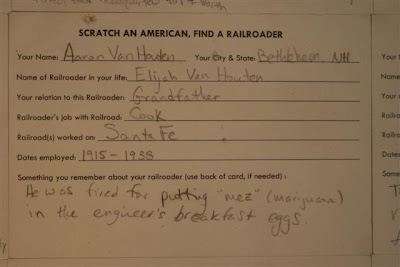 SCRATCH AN AMERICAN, FIND A RAILROADER
Your Name: Aaran Van Houten Your City & State: Bethlehem, NH
Name of Railroader in your life: Elijah Van Houten
Your relation to this Railroader: Grandfather
Railroader's job with Railroad: Cook
Railroad(s) worked on: Santa Fe
Dates employed: 1915-1938
Something you remember about your railroader (use back of card, if needed):
He was fired for putting "mez" (marijuana)
in the engineer's breakfast eggs.